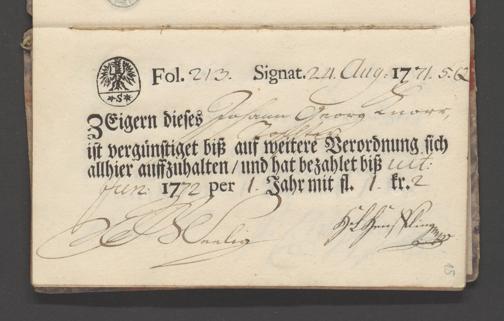 Fol. 213. Signat. 24. Aug: 1771.
Zeigern dieses Johann Georg Knorr,
ist vergünstiget biß auf weitere Verordnung sich
allhier auffzuhalten / und hat bezahlet biß ult:
Jun: 1772 per 1. Jahr mit fl. 1. kr. 2
*S*